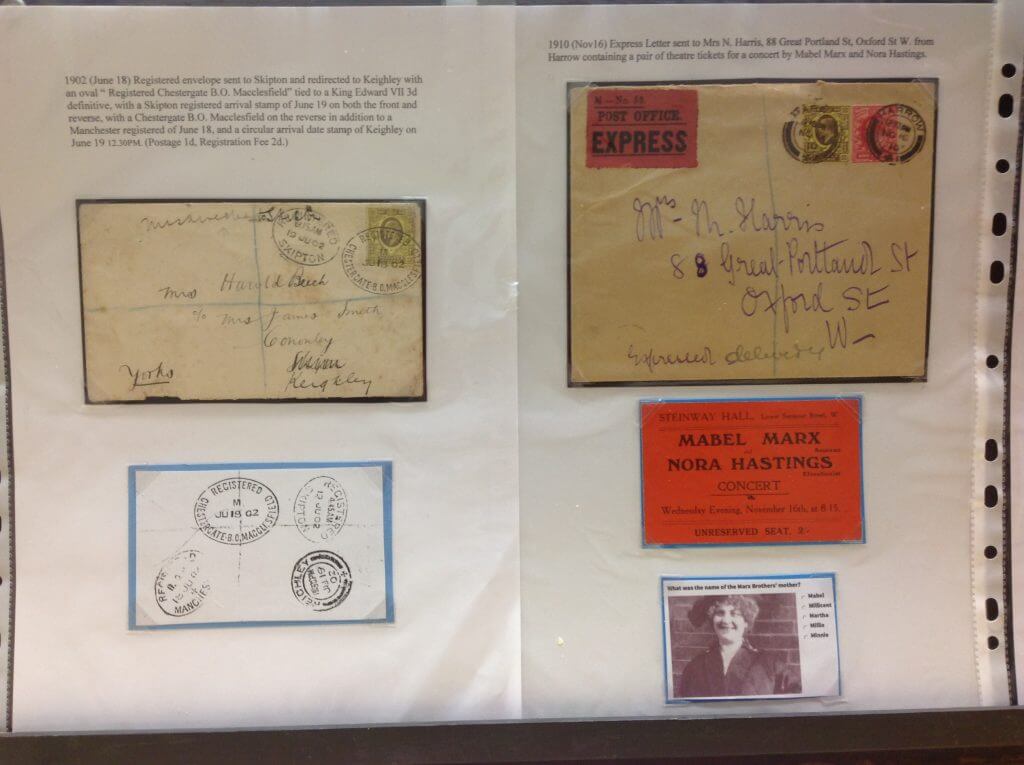 1902 (June 18) Registered envelope sent to Skipton and redirected to Keighley with
an oval " Registered Chestergate B.O. Macclesfield" tied to a King Edward VII 3d
definitive, with a Skipton registered arrival stamp of June 19 on both the front and
reverse, with a Chestergate B.O. Macclesfield on the reverse in addition to a
Manchester registered of June 18, and a circular arrival date stamp of Keighley on
June 19 12.30PM. (Postage 1d, Registration Fee 2d.)
REGISTERED
19 JU 02
SKIPTON
REGISTERED
JU 18 02
CHESTERGATE·B.O,MACCLESFIELD
Mrs Harold Beech
c/o Mrs James Smith
Cononley
Keighley
Yorks
REGISTERED
M
JU 18 02
CHESTERGATE·B.O,MACCLESFIELD
REGISTERED
19 JU 02
SKIPTON
18 JU 02
MANCHES
KEIGHLEY
JU 19
02
1910 (Nov16) Express Letter sent to Mrs N. Harris, 88 Great Portland St, Oxford St W. from
Harrow containing a pair of theatre tickets for a concert by Mabel Marx and Nora Hastings.
M - No. 59.
POST OFFICE.
EXPRESS
HARROW
NO 16
10
Mrs N. Harris
88 Great Portland St
Oxford St
W-
Expressed delivery
STEINWAY HALL, Lower Seymour Street, W.
MABEL MARX
and
NORA HASTINGS
CONCERT
Wednesday Evening, November 16th, at 8.15.
UNRESERVED SEAT. 2/-
What was the name of the Marx Brothers' mother?
Mabel
Millicent
Martha
Millie
Minnie